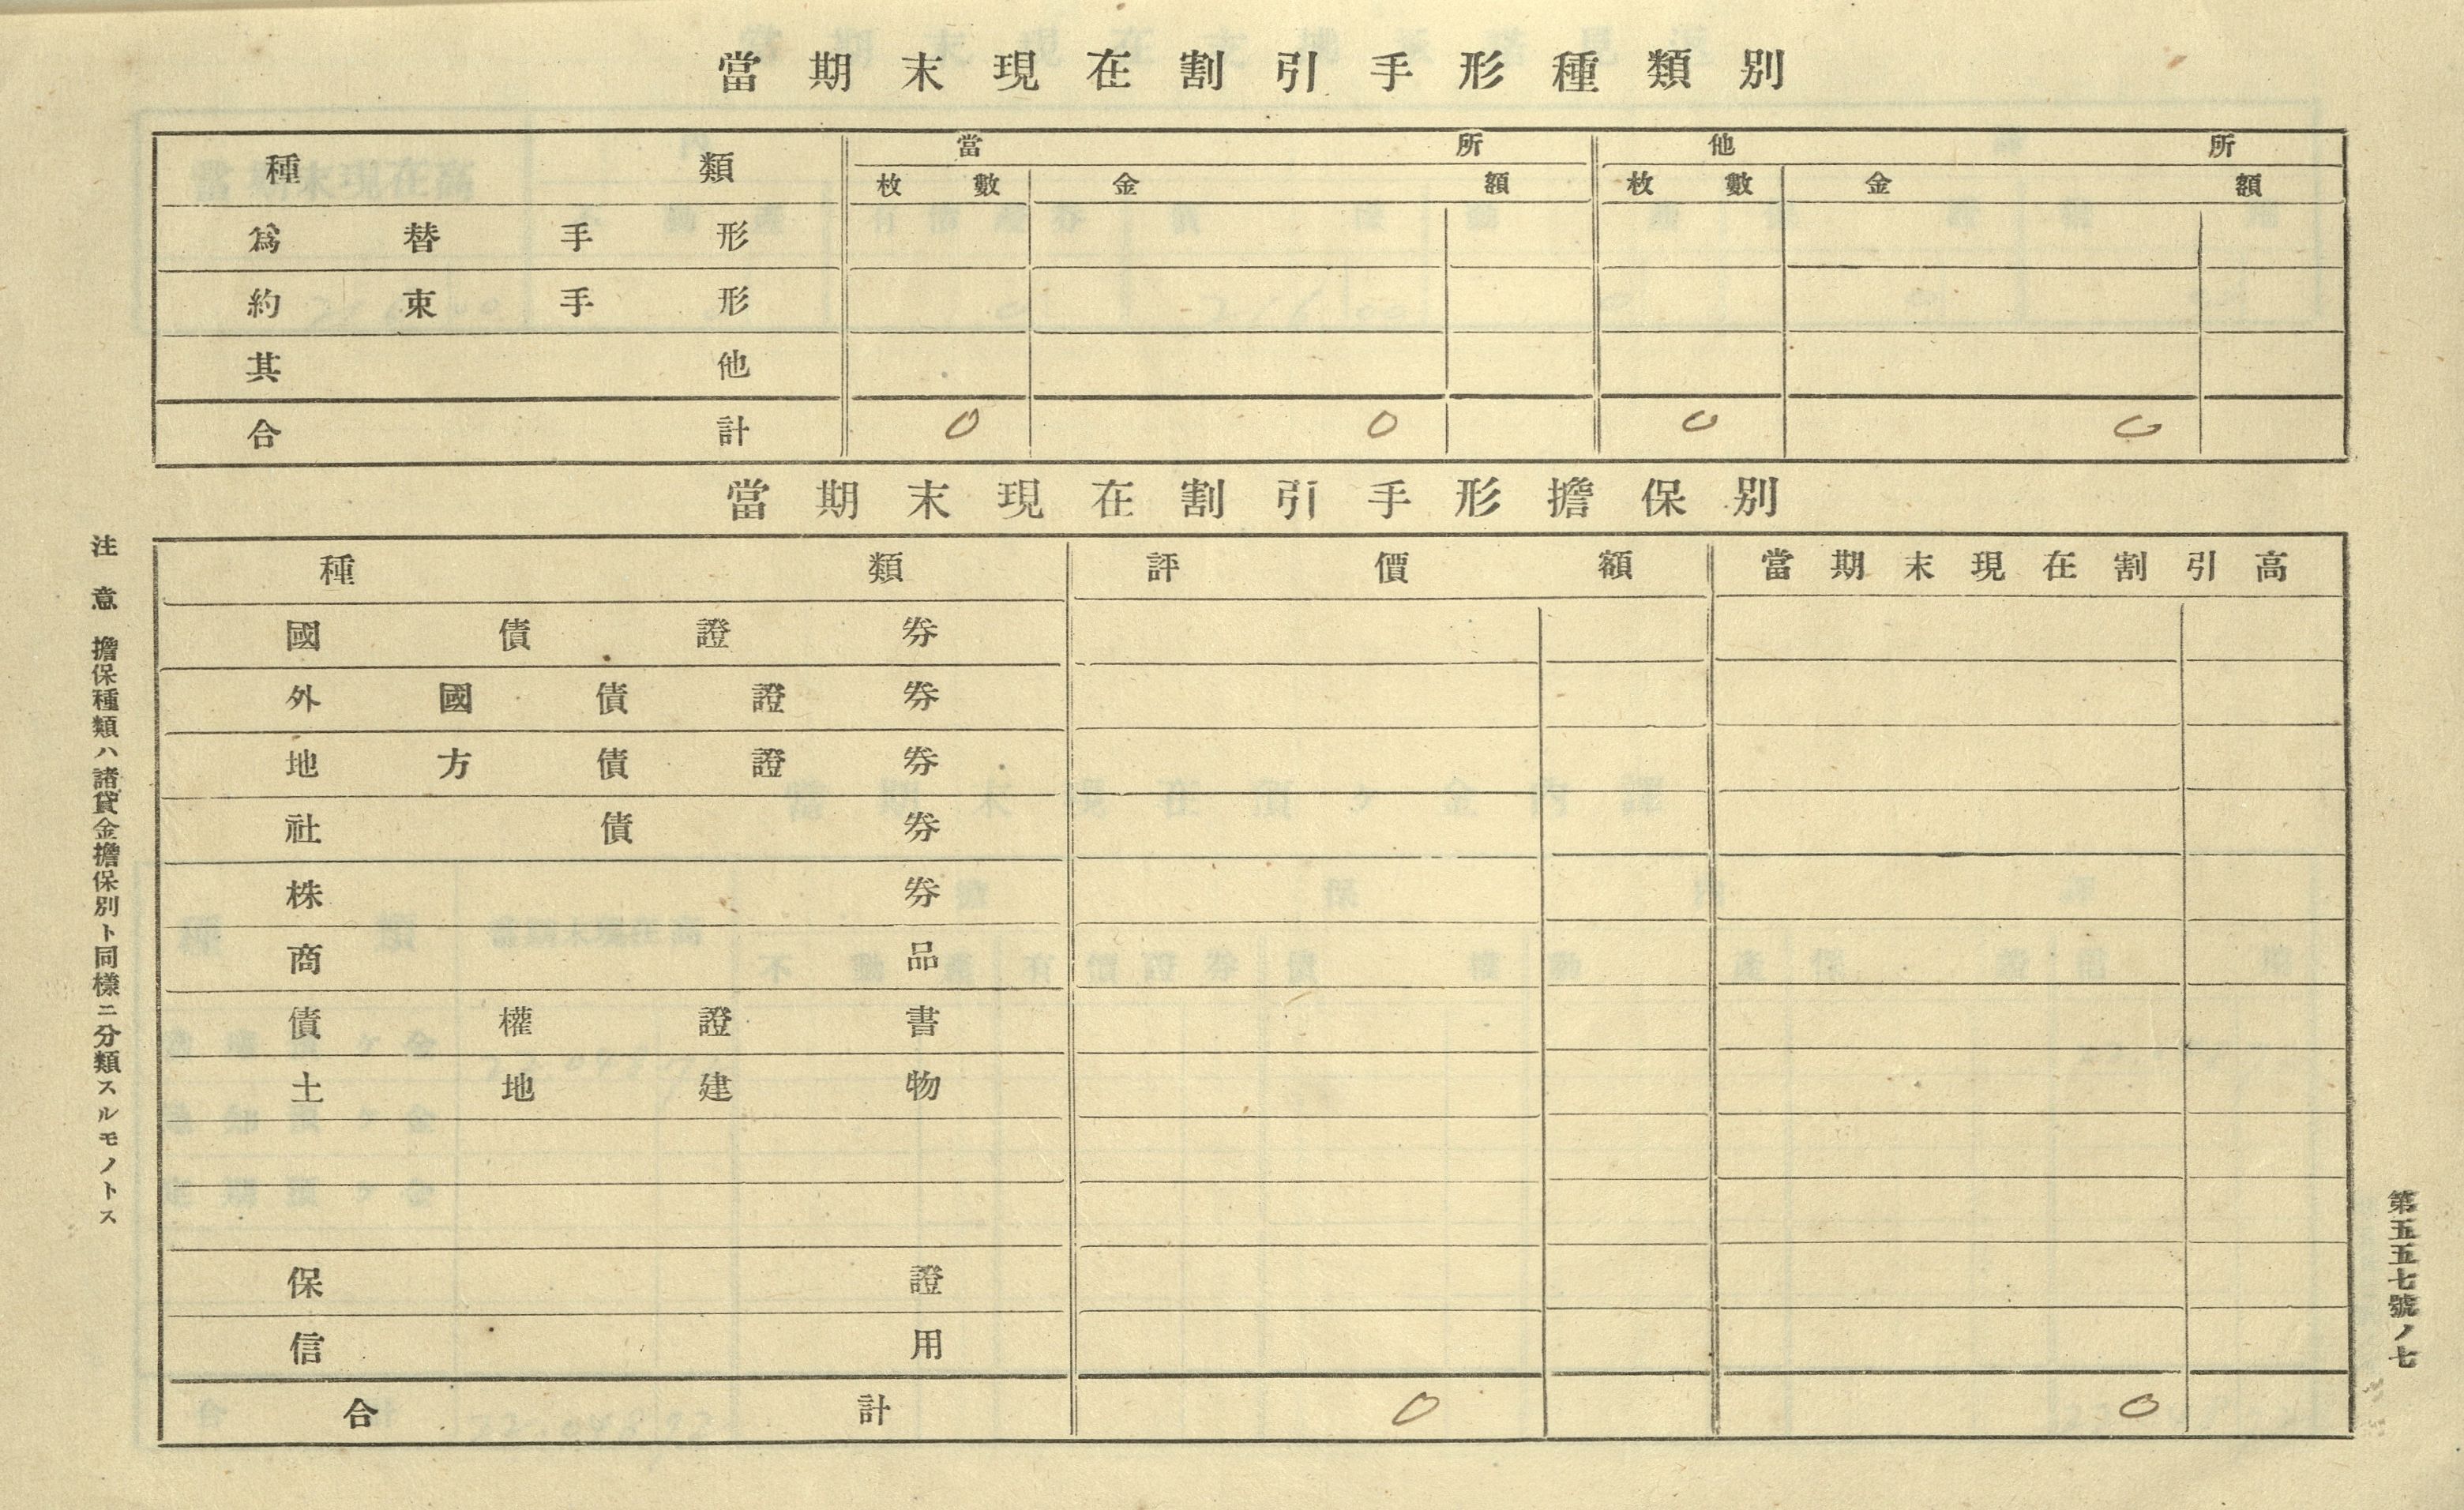 當期末現在割引手形種類別
種類 當所 他所
枚數 金額 枚數 金額
爲替手形
約束手形
其他
合計 0 0 0 0
當期末現在割引手形擔保別
種類 評價額 當期末現在割引高
國債證券
外國債證券
地方債證券
社債券
株券
商品
債權證書
土地建物
保證
信用
合計 0 0
注意 擔保種類ハ諸貸金擔保別ト同樣ニ分類スルモノトス
第五五七號ノ七